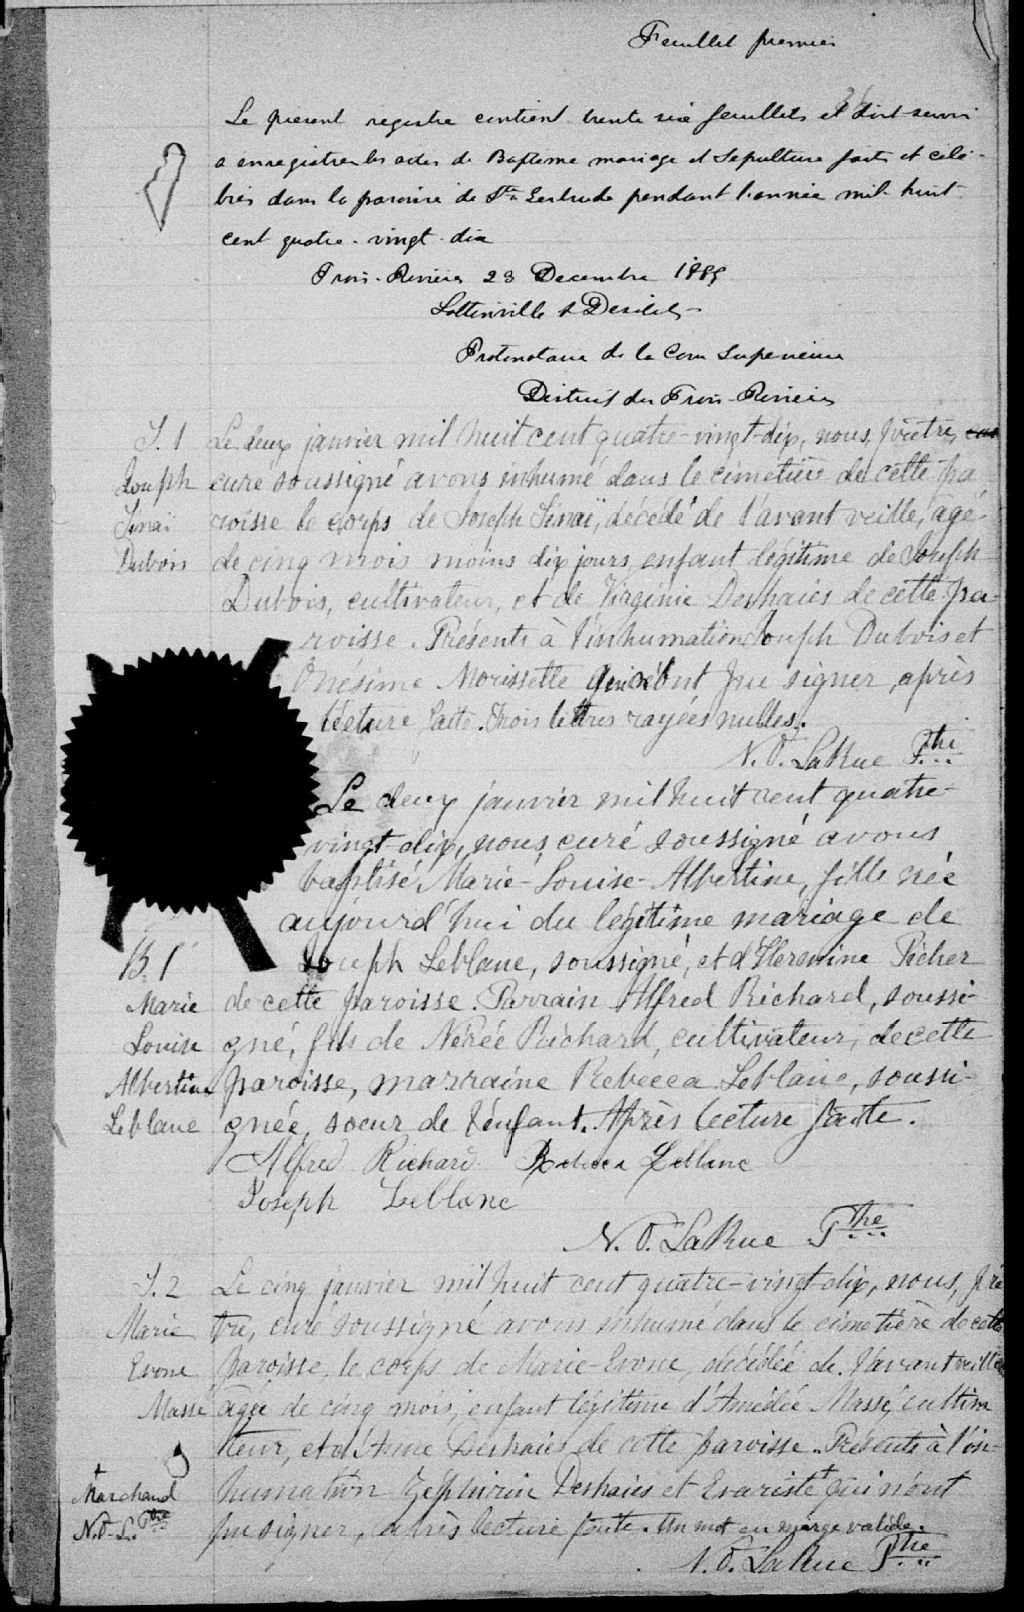 Feuillet premier
Le present registre contient trente six feuillets et doit servir
a enregistrer les actes de Baptême mariage et Sepulture faits et célé-
brés dans la paroisse de Ste Gertrude pendant l'année mil huit
cent quatre-vingt-dix
Trois-Rivières 28 Decembre 1889
Lottinville & Desilets
Protonotaire de la Cour Superieure
District des Trois-Rivières
S. 1
Joseph
Sinaï
Dubois
Le deux janvier mil huit cent quatre-vingt-dix, nous, prêtre,
curé soussigné avons inhumé dans le cimetière de cette pa-
roisse le corps de Joseph Sinaï, décédé de l'avant veille, âgé
de cinq mois moins dix jours, enfant légitime de Joseph
Dubois, cultivateur, et de Virginie Deshaies de cette pa-
roisse. Présents à l'inhumation Joseph Dubois et
Onésime Morissette qui n'ont pu signer, après
lecture faite. Trois lettres rayées nulles.
N. O. LaRue Ptre
B. 1
Marie
Louise
Albertine
Leblanc
Le deux janvier mil huit cent quatre-
vingt-dix, nous, curé soussigné avons
baptisé Marie-Louise-Albertine, fille née
aujourd'hui du légitime mariage de
Joseph Leblanc, soussigné, et d'Hermine Picher
de cette paroisse. Parrain Alfred Richard, soussi-
gné, fils de Nérée Richard, cultivateur, de cette
paroisse, marraine Rebecca Leblanc, soussi-
gnée, soeur de l'enfant. Après lecture faite.
Alfred Richard Rebecca Leblanc
Joseph Leblanc
N. O. LaRue Ptre
S. 2
Marie
Evone
Massé
Le cinq janvier mil huit cent quatre-vingt-dix, nous, prê
tre, curé soussigné avons inhumé dans le cimetière de cette
paroisse, le corps de Marie-Evone, décédée de l'avant veille
âgée de cinq mois, enfant légitime d'Amédée Massé, cultiva
teur, et d'Anne Deshaies de cette paroisse. Présents à l'in-
humation Zéphirin Deshaies et Evariste + qui n'ont
pu signer, après lecture faite. Un mot en marge valide.
+ Marchand
N. O. L. Ptre
N. O. LaRue Ptre